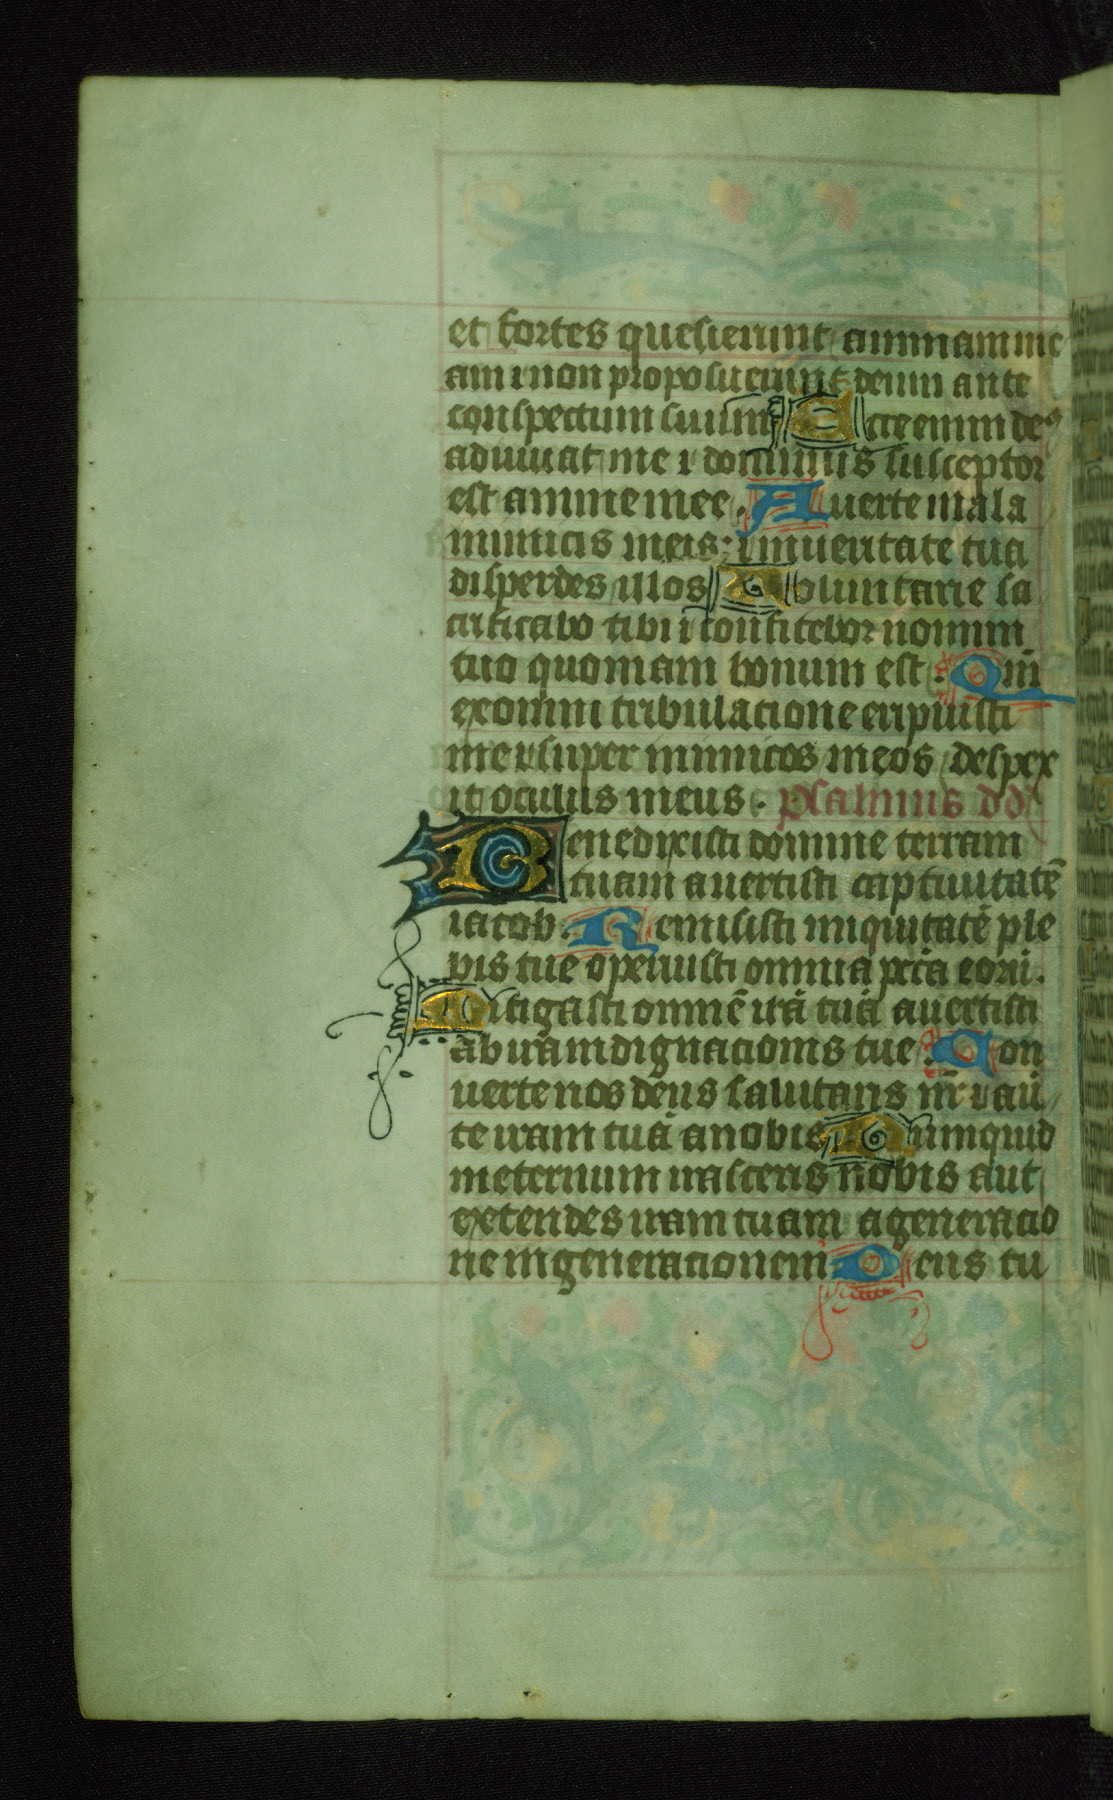 et fortes quesierunt animam me
am ⁊ non proposuerunt deum ante
conspectum suum Ecce enim deꝰ
adiuuat me ⁊ dominus susceptor
est anime mee. Auerte mala
inimicis meis: ⁊ in ueritate tua
disperdes illos Voluntarie sa
crificabo tibi ⁊ confitebor nomini
tuo quoniam bonum est: Qm̄
ex omni tribulacione eripuisti
me ⁊ super inimicos meos despex
it oculus meus. psalmus dd̄
Benedixisti domine terram
tuam auertisti captiuitatē
iacob. Remisisti iniquitatē ple
bis tue operuisti omnia pctā eorū.
Mitigasti omnē irā tuā auertisti
ab ira indignacionis tue: Con
uerte nos deus salutaris nr̄ ⁊ au̅
te iram tuā a nobis Numquid
in eternum irasceris nobis aut
extendes iram tuam a generacio
ne in generacionem Deus tu